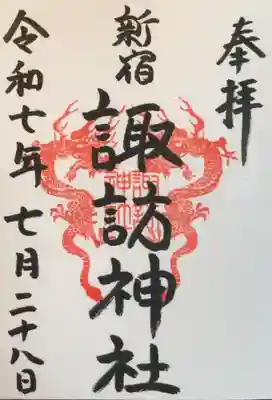 奉拝
新宿
諏訪神社
令和七年 七月二十八日